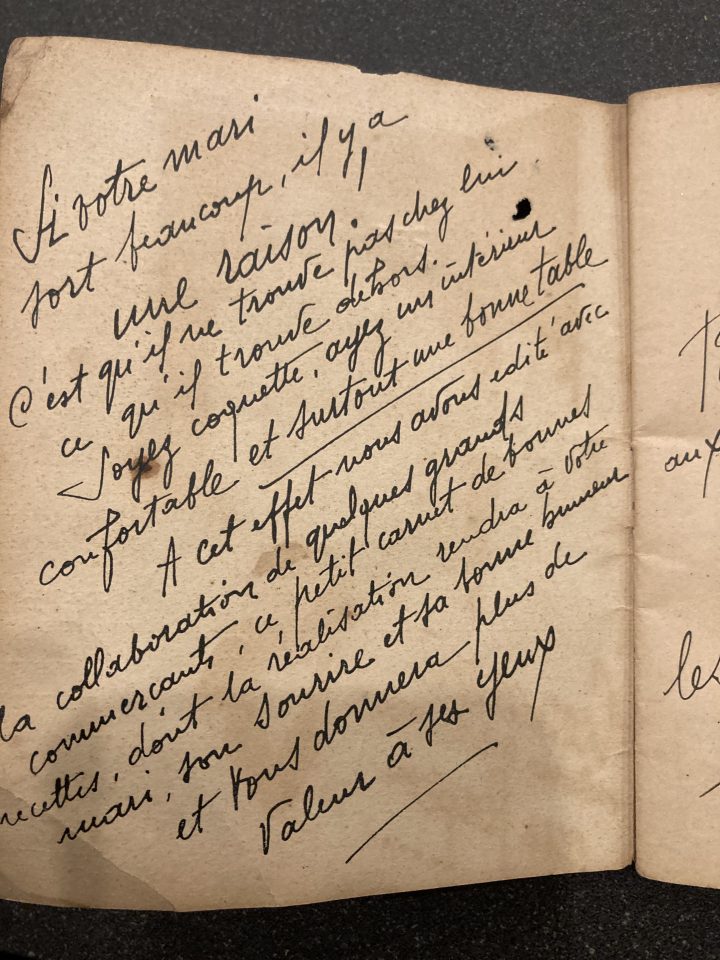 Si votre mari
sort beaucoup, il y a
une raison.
C'est qu'il ne trouve pas chez lui
ce qu'il trouve dehors.
Soyez coquette, ayez un intérieur
confortable et surtout une bonne table
A cet effet nous avons edité avec
la collaboration de quelques grands
commerçants, ce petit carnet de bonnes
recettes, dont la réalisation rendra à votre
mari, son sourire et sa bonne humeur
et vous donnera plus de
valeur à ses yeux
aux
les